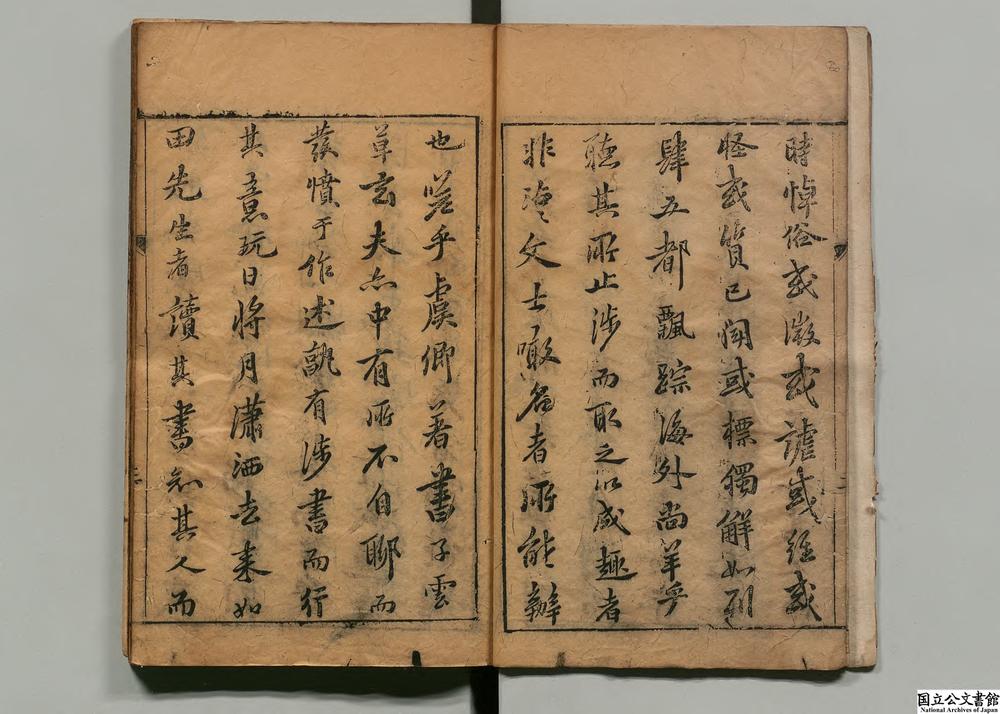 時悼俗或激或謔或經或
怪或質已聞或標獨解如列
肆五都飄踪海外尚羊乎
聽其所止涉而取之以成趣者
非沾沾文士噉名者所能辦
也嗟乎虞卿著書子雲
草玄夫亦中有所不自聊而
發憤于作述孰有涉書而行
其意玩日將月瀟洒去來如
田先生者讀其書知其人而
国立公文書館
National Archives of Japan